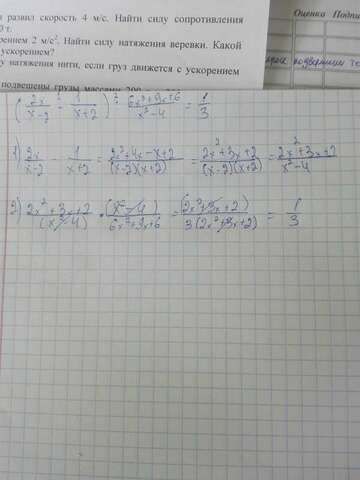 развил скорость 4 м/с. Найти силу сопротивления
0 т.
рением 2 м/с². Найти силу натяжения веревки. Какой
ускорением?
у натяжения нити, если груз движется с ускорением
подвешены грузы массами 200
Оценка Подпи
(2x/x-2 - 1/x+2) : 6x²+9x+6/x²-4 = 1/3
1) 2x/x-2 - 1/x+2 = 2x²+4x-x+2/(x-2)(x+2) = 2x²+3x+2/(x-2)(x+2) = 2x²+3x+2/x²-4
2) 2x²+3x+2/(x²-4) · (x²-4)/6x²+9x+6 = (2x²+3x+2)/3(2x²+3x+2) = 1/3